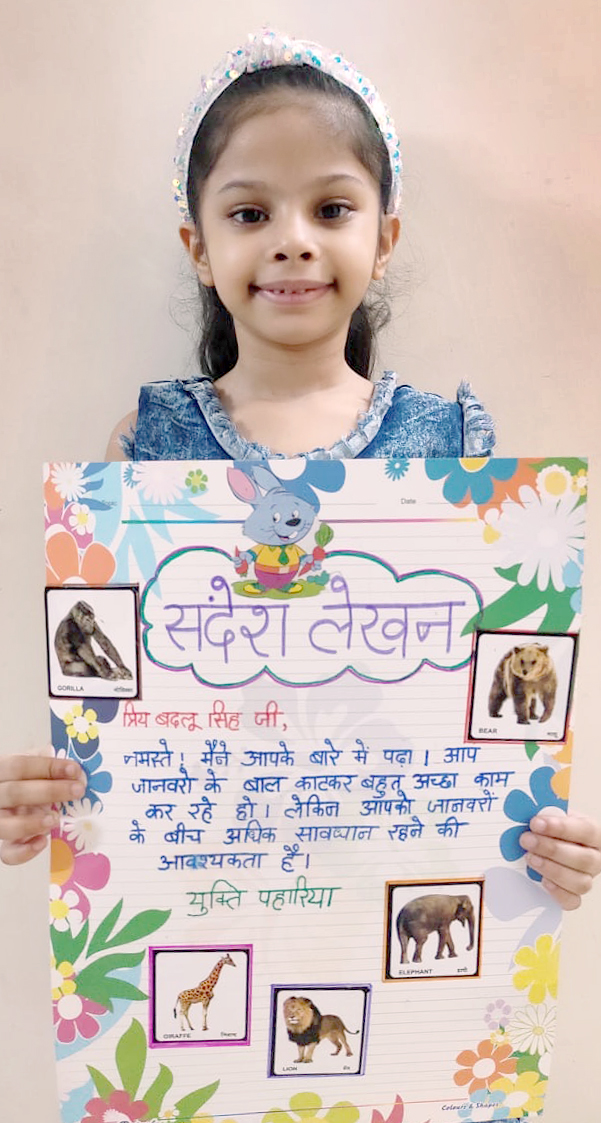 Date
संदेश लेखन
GORILLA गोरिल्ला
BEAR भालू
प्रिय बदलू सिंह जी,
नमस्ते! मैंने आपके बारे में पढ़ा। आप
जानवरो के बाल काटकर बहुत अच्छा काम
कर रहे हो। लेकिन आपको जानवरों
के बीच अधिक सावधान रहने की
आवश्यकता है।
युक्ति पहारिया
ELEPHANT हाथी
GIRAFFE जिराफ
LION शेर
Colours & Shapes